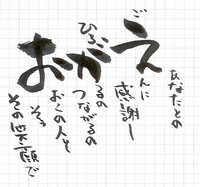 あなたとの
ごえんに感謝し
ひろがるの
つながるの
おおくの人と
そう
その笑顔で